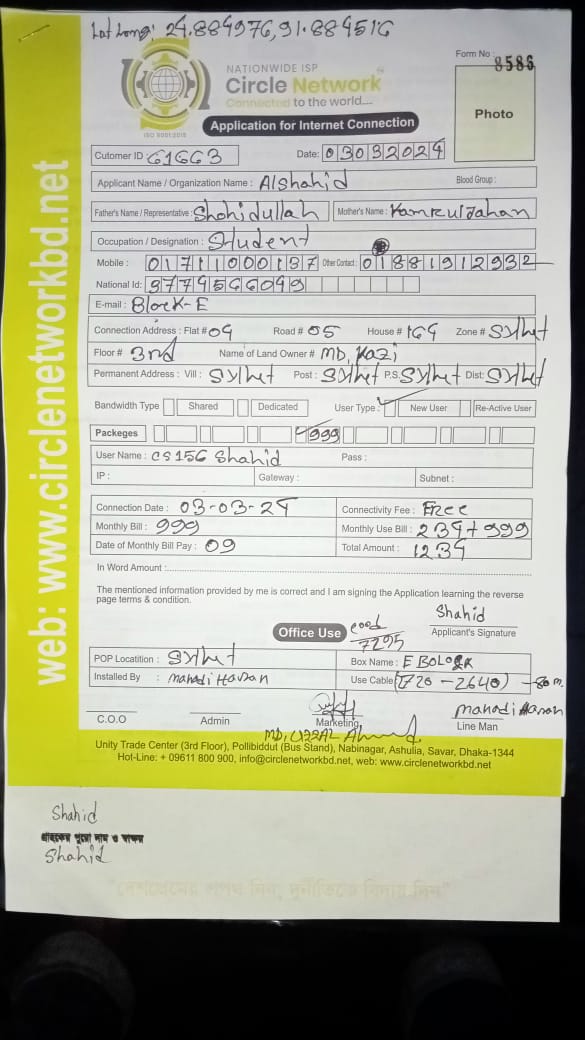 Lat Long: 24.884976, 91.884516
Form No: 8586
NATIONWIDE ISP
Circle Network
Connected to the world....
ISO 9001:2015
Application for Internet Connection
Photo
web: www.circlenetworkbd.net
Cutomer ID 61663 Date: 03032024
Applicant Name / Organization Name: Alshahid Blood Group:
Father's Name / Representative: Shohidullah Mother's Name: Kamruljahan
Occupation / Designation: Student
Mobile: 01711000137 Other Contact: 01881912932
National Id: 3774566049
E-mail: Block-E
Connection Address: Flat # 04 Road # 05 House # 164 Zone # Sylhet
Floor # 3rd Name of Land Owner # MD, Kazi
Permanent Address: Vill: Sylhet Post: Sylhet P.S Sylhet Dist: Sylhet
Bandwidth Type Shared Dedicated User Type: New User Re-Active User
Packeges 999
User Name: CS156 Shahid Pass:
IP: Gateway: Subnet:
Connection Date: 03-03-24 Connectivity Fee: Free
Monthly Bill: 999 Monthly Use Bill: 234+999
Date of Monthly Bill Pay: 09 Total Amount: 1234
In Word Amount:
The mentioned information provided by me is correct and I am signing the Application learning the reverse
page terms & condition.
Shahid
Office Use 7295 Applicant's Signature
POP Locatition: Sylhet Box Name: E BOLOCK
Installed By: mahadi Hasan Use Cable (720-2640) -80 m.
mahadi Hasan
C.O.O Admin Marketing Line Man
Unity Trade Center (3rd Floor), Pollibiddut (Bus Stand), Nabinagar, Ashulia, Savar, Dhaka-1344
Hot-Line: + 09611 800 900, info@circlenetworkbd.net, web: www.circlenetworkbd.net
Shahid
গ্রাহকের পুরো নাম ও স্বাক্ষর
Shahid
"দেশপ্রেমের শপথ নিন, দুর্নীতিকে বিদায় দিন"